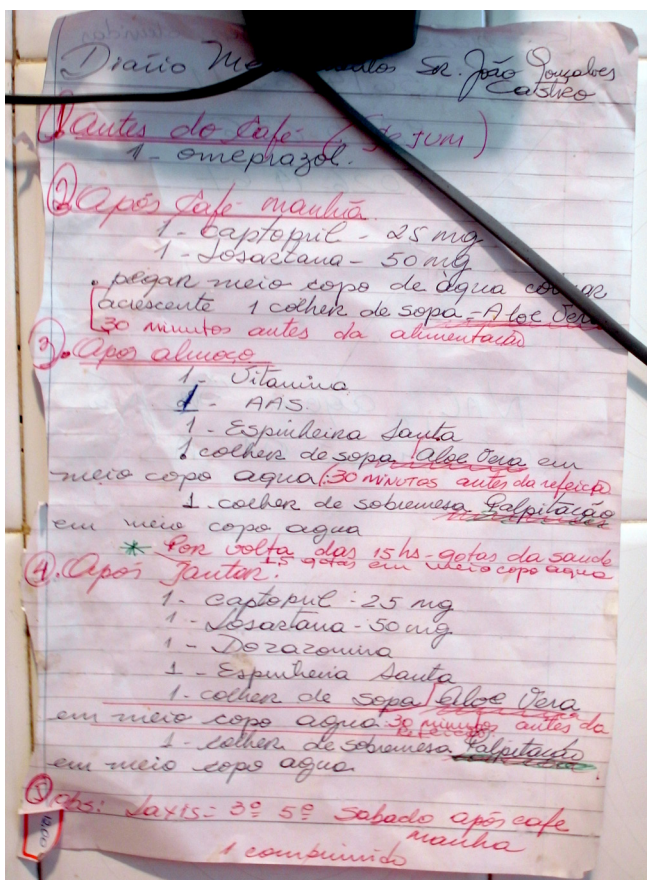 Diário Me tos Sr. João Gonçalves
Castro
1 Antes do Café (Jejum)
1 - omeprazol.
2 Após Café manhã
1 - Captopril - 25 mg
1 - Losartana - 50 mg
. pegar meio copo de água
acrescente 1 colher de sopa = Aloe Vera
30 minutos antes da alimentação
3. Após almoço
1 - Vitamina
1 - AAS.
1 - Espinheira Santa
1 colher de sopa Aloe Vera em
meio copo agua (30 minutos antes da refeição
1. colher de sobremesa Palpitação
em meio copo agua
* Por volta das 15hs - gotas da saude
15 gotas em meio copo agua
4. Após Jantar.
1 - Captopril - 25 mg
1 - Losartana - 50 mg
1 - Dozazomina
1 - Espinheira Santa
1 - colher de sopa Aloe Vera
em meio copo agua 30 minutos antes da
refeição
1 - colher de sobremesa Palpitação
em meio copo agua.
5 obs: Laxis = 3º 5º Sabado após cafe
manha
1 comprimido